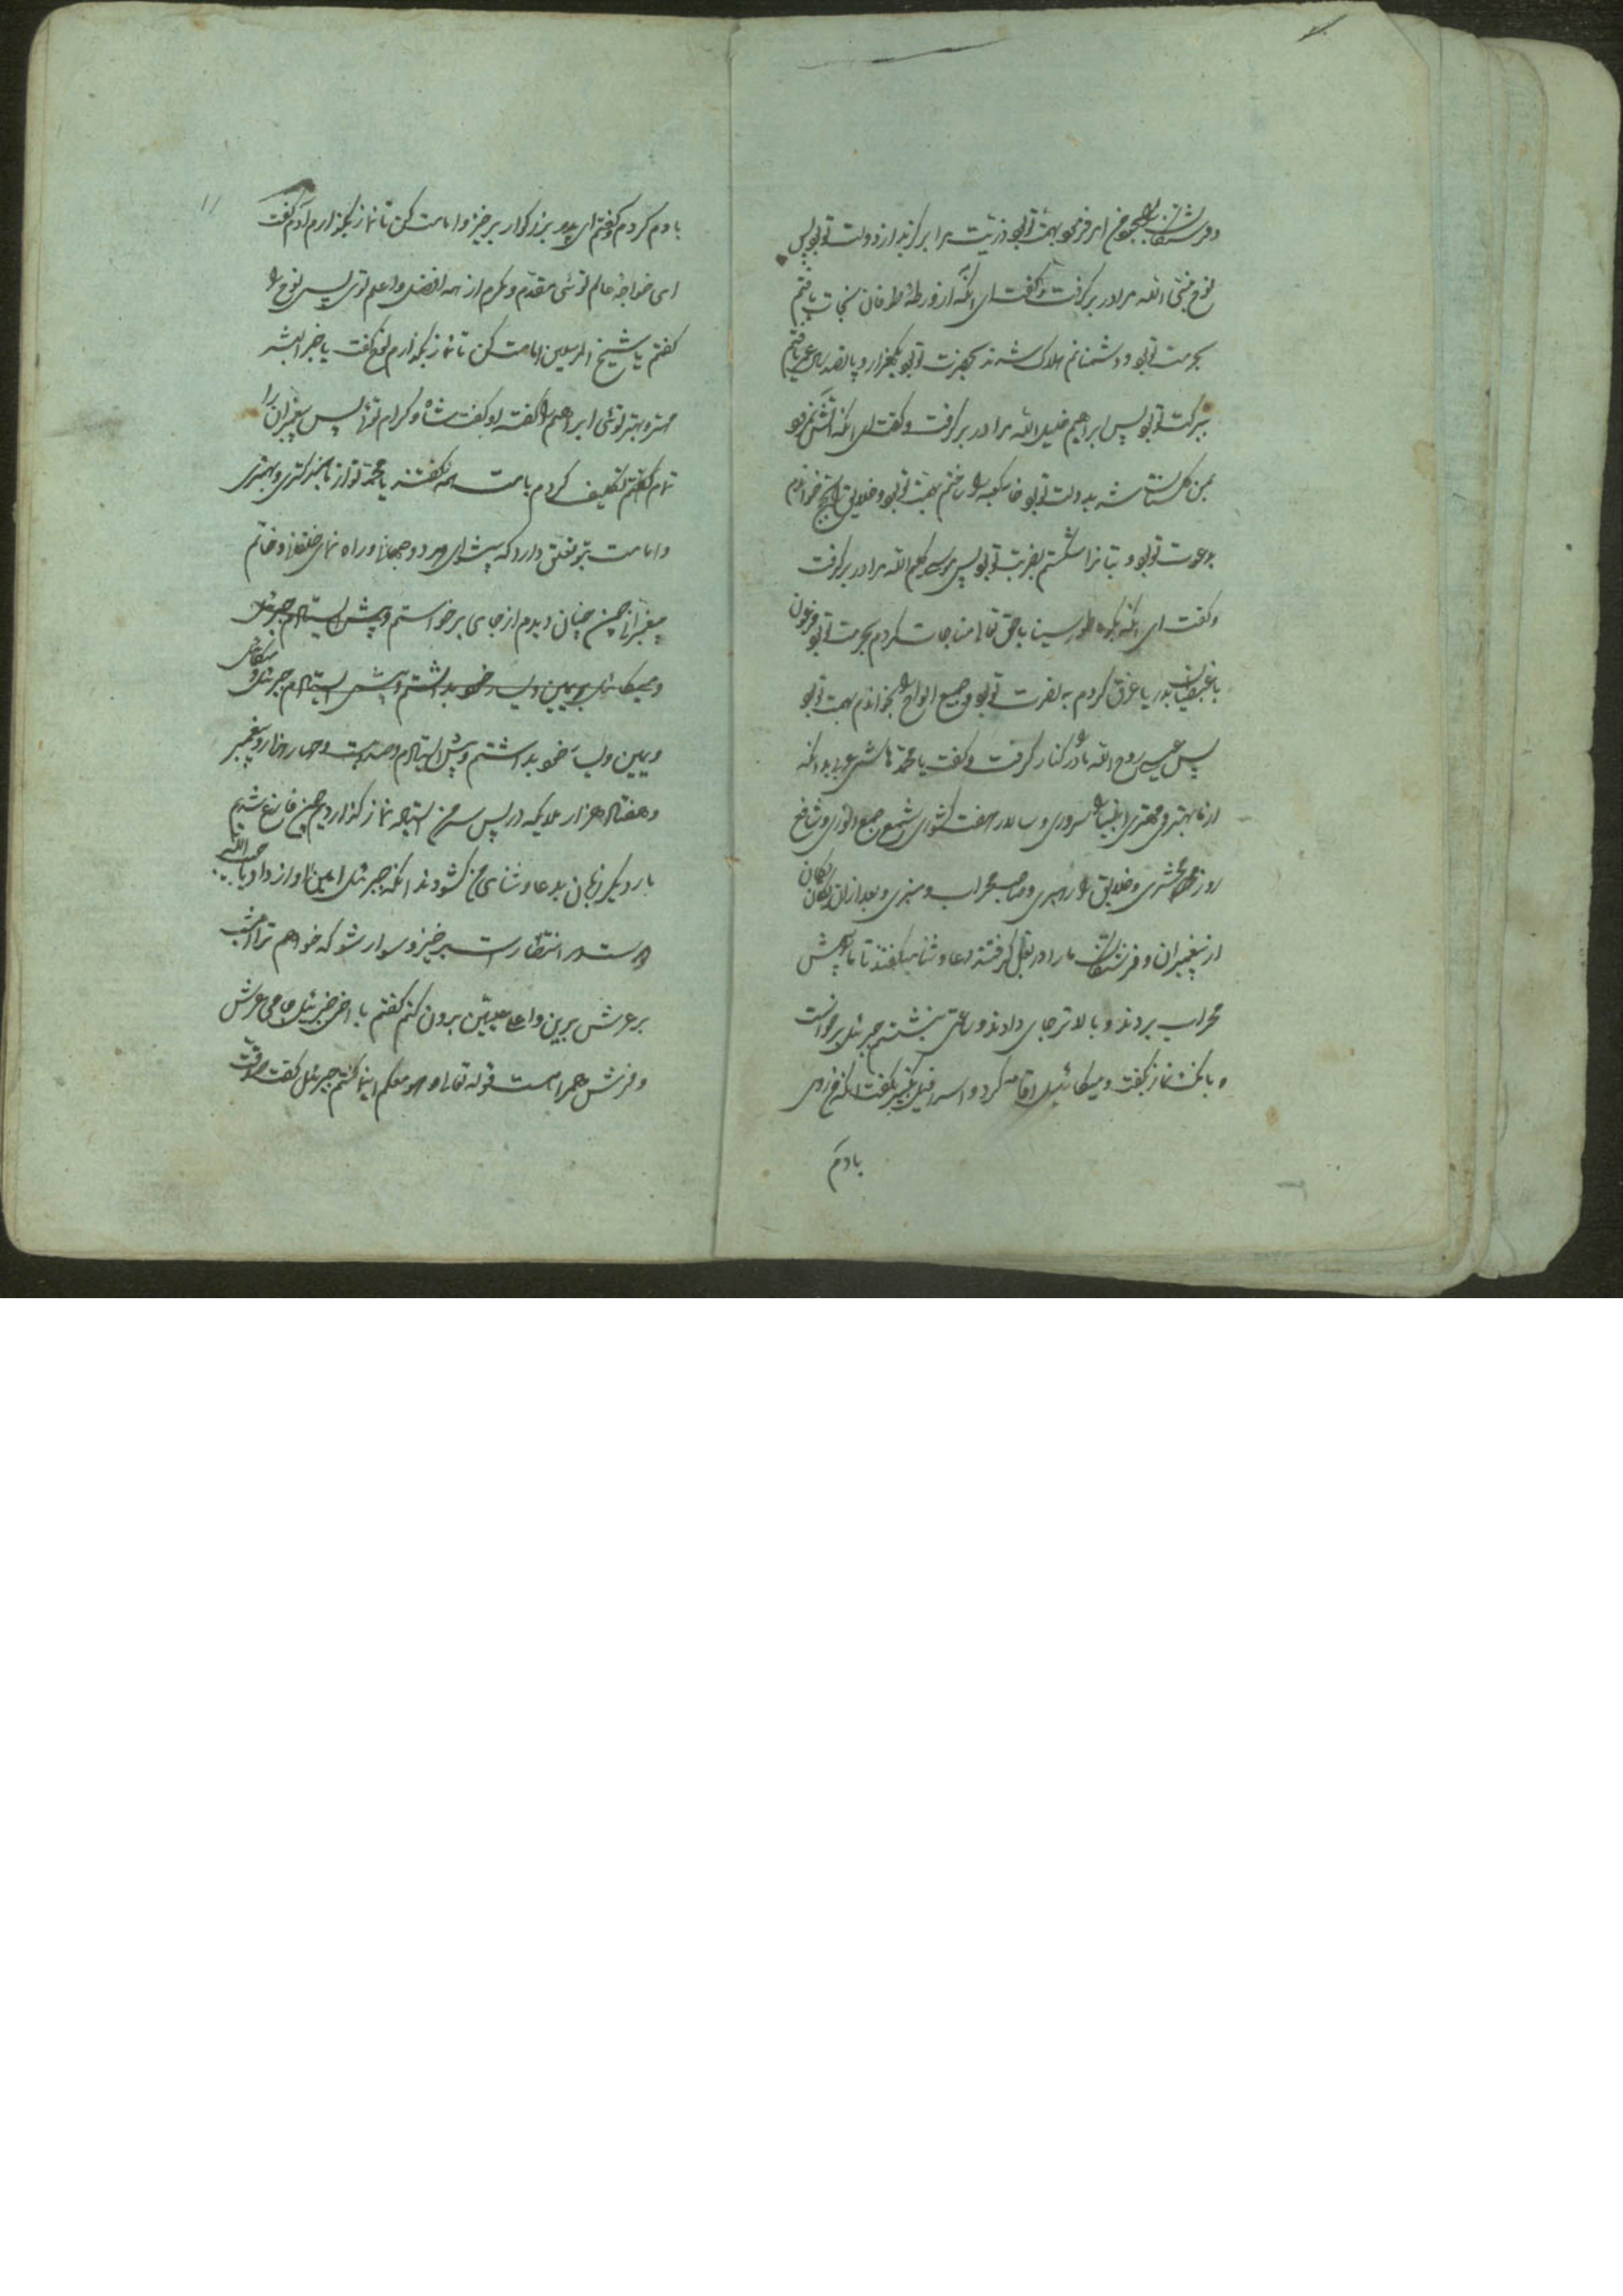 و فرشتگان را بسجود من امر فرمود بهمت تو بود ذریت مرا برگزید از دولت تو بود پس
نوح نجی الله مرا در بر گرفت و گفت ای آنکه از ورطهٔ طوفان نجات یافتم
بحرمت تو بود و دشمنانم هلاک شدند بحضرت تو بود یکهزار و پانصد سال عمر یافتم
ببرکت تو بود پس ابراهیم خلیل الله مرا در بر گرفت و گفت ای آنکه آتش نمرود
بمن گلستان شد بدولت تو بود خانه کعبه را ساختم بهمت تو بود و خلایق را بحج خواندم
بدعوت تو بود و بتانرا شکستم بضربت تو بود پس موسی کلیم الله مرا در بر گرفت
و گفت ای آنکه بکوه طور سینا با حق تعالی مناجات کردم بحرمت تو بود فرعون
با قبطیان بدریا غرق کردم به نصرت تو بود و جمیع الواح را بخواندم بهمت تو بود
پس عیسی روح الله مرا در کنار گرفت و گفت یا محمد هاشمی عربی بدانکه
از ما بهتر و مهتری انبیا را سروری و سالار هفت کشوری و شمع جمع انوری و شافع
روز محشری و خلایق را رهبری و صاحب محراب و منبری و بعد از آن یکان یکان
از پیغمبران و فرشتگان ما را در بغل گرفتند و دعا و ثنا میگفتند تا ما را پیش
محراب بردند و بالاتر جای دادند و ساعتی بنشستم جبرئیل برخواست
و بانک نماز بگفت و میکائیل اقامه کرد و اسرافیل تکبیر بگفت آنکه من روی
بادم
۱۱
بادم کردم و گفتم ای پدر بزرگوار برخیز و امامت کن تا نماز بگذارم آدم گفت
ای خواجهٔ عالم توئی مقدّم و مکرم از همه افضل و اعلم توی پس نوح را
گفتم یا شیخ المرسلین امامت کن تا نماز بگذارم نوح گفت یا خیر البشر
مهتر و بهتر توئی ابراهیم را گفتم او گفت شاه و کرام توئی پس پیغمبران را
تمام گفتم تکلیف کردم بامامت همه گفتند یا محمد تو از ما بزرگتری و بهتری
و امامت بتو تعلق دارد که پیشوای هر دو جهان و راه نمای خلقان و خاتم
پیغمبرانی چون چنان دیدم از جای برخواستم و پیش ایستادم جبرئیل
و میکائیل بر یمین و یسار خود بداشتم و پیش ایستادم جبرئیل و میکائیل
و یمین و یسار خود بداشتم و پیش ایستادم و صد و بیست و چهار هزار پیغمبر
و هفتاد هزار ملایکه در پس سر من ایستاده نماز گذاردیم چون فارغ شدیم
بار دیگر زبان بدعا و ثنای من گشودند آنکه جبرئیل امین آواز داد یا حبیب الله
دوست در انتظار است برخیز و سوار شو که خواهم ترا امشب
بر عرش برین و اعلا علیّین برون کنم گفتم یا اخی جبرئیل جامی عرش
و فرش همراهست قوله تعالی و هو معکم اینما کنتم جبرئیل گفت صدقت